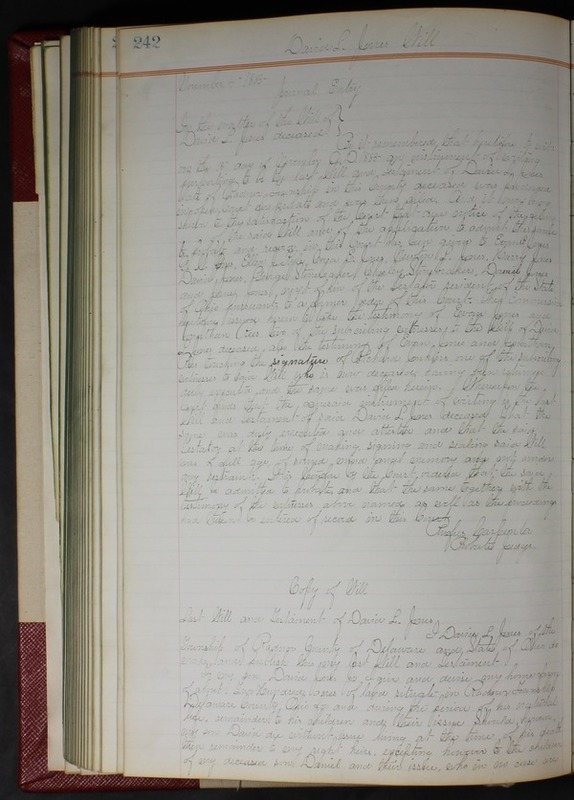 242
David L. Jones Will
November 1885
Journal Entry
In the matter of the Will of
David L. Jones deceased
Be it remembered that heretofore to wit:
on the day of A.D. 1885 an instrument of writing
purporting to be the last Will and Testament of David L. Jones
late of Radnor township in this County deceased was produced
in open Court for probate and And it being
shown to the satisfaction of the Court that due notice of the
of the said Will and of the application to admit the same
to probate and record in this Court has been given to
Jones, Jones, Harry Jones
David Jones, Stonebraker, Charley Stonebraker, Daniel Jones
and Jones, of the testator resident of the State
of Ohio pursuant to a former order of this Court. The Commission
herein to take the testimony of George Jones and
Jonathan two of the subscribing witnesses to the Will of David
L. Jones deceased, and the testimony of Jones and
touching the signature of one of the subscribing
witnesses to said Will who is now deceased, having been
duly executed and the same was filed herein. Whereupon the
Court finds that the aforesaid instrument of writing is the last
Will and Testament of said David L. Jones deceased, that the
same was duly executed and attested and that the said
testator at the time of making, signing and sealing said Will
was of full age, of sound mind and memory and not under
any restraint. It is therefore by the Court ordered that the said
Will be admitted to probate, and that the same together with the
testimony of the witnesses above named as well as the proceedings
had therein be entered of record in this Court.
Carpenter
Probate Judge.
Copy of Will
Last Will and Testament of David L. Jones
I David L. Jones of the
Township of Radnor County of Delaware and State of Ohio do
make and publish this my last Will and Testament.
my son David I give and devise my home farm
of about One Hundred acres of land situate in Radnor Township
Delaware County, Ohio for and during the period of his natural
life, remainder to his children and their issue. Should however,
my son David die without issue living at the time of his death
then remainder to my right heirs, excepting however to the children
of my deceased son Daniel and their issue, who in no case are